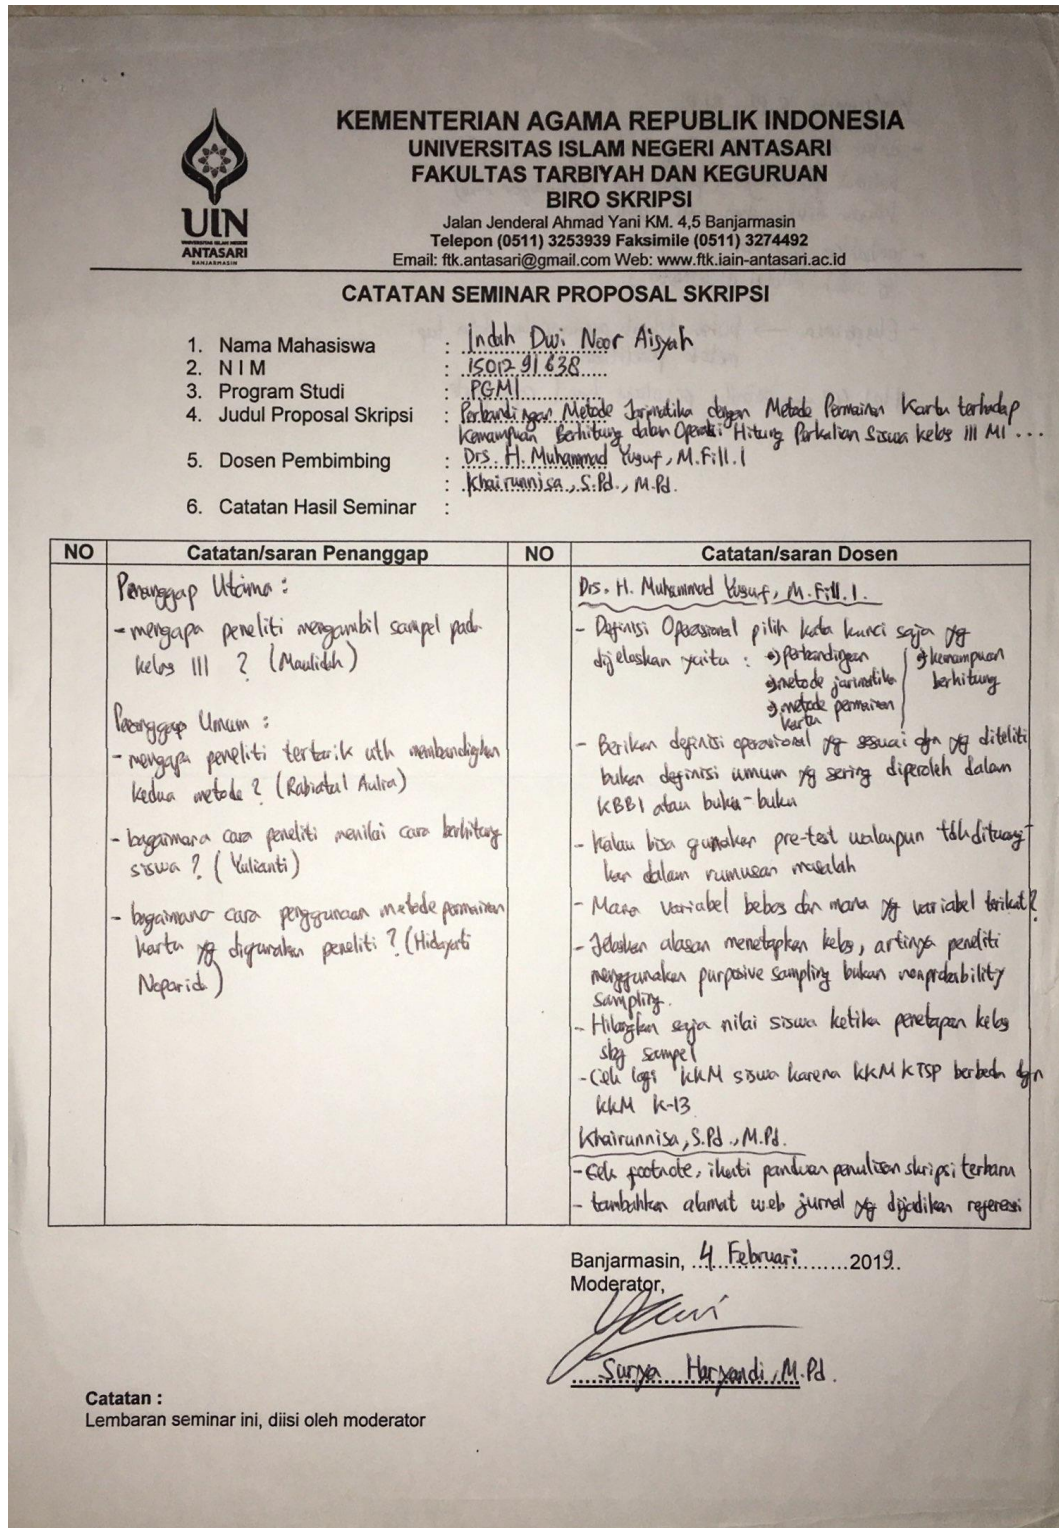 UIN
UNIVERSITAS ISLAM NEGERI
ANTASARI
BANJARMASIN
KEMENTERIAN AGAMA REPUBLIK INDONESIA
UNIVERSITAS ISLAM NEGERI ANTASARI
FAKULTAS TARBIYAH DAN KEGURUAN
BIRO SKRIPSI
Jalan Jenderal Ahmad Yani KM. 4,5 Banjarmasin
Telepon (0511) 3253939 Faksimile (0511) 3274492
Email: ftk.antasari@gmail.com Web: www.ftk.iain-antasari.ac.id
CATATAN SEMINAR PROPOSAL SKRIPSI
1. Nama Mahasiswa : Indah Dwi Noor Aisyah
2. N I M : 1501291638
3. Program Studi : PGMI
4. Judul Proposal Skripsi : Perbandingan Metode Jarimatika dengan Metode Permainan Kartu terhadap
Kemampuan Berhitung dalam Operasi Hitung Perkalian Siswa Kelas III MI ...
5. Dosen Pembimbing : Drs. H. Muhammad Yusuf, M.Fill.I
: Khairunnisa, S.Pd., M.Pd.
6. Catatan Hasil Seminar :
NO Catatan/saran Penanggap NO Catatan/saran Dosen
Penanggap Utama :
- mengapa peneliti mengambil sampel pada
kelas III ? (Maulidah)
Penanggap Umum :
- mengapa peneliti tertarik utk membandingkan
kedua metode ? (Rabiatul Aulia)
- bagaimana cara peneliti menilai cara berhitung
siswa ? (Yulianti)
- bagaimana cara penggunaan metode permainan
kartu yg digunakan peneliti ? (Hidayati
Noparida)
Drs. H. Muhammad Yusuf, M.Fill.I.
- Definisi Operasional pilih kata kunci saja yg
dijelaskan yaitu : perbandingan
metode jarimatika
metode permainan
kartu
kemampuan
berhitung
- Berikan definisi operasional yg sesuai dgn yg diteliti
bukan definisi umum yg sering diperoleh dalam
KBBI atau buku-buku
- Kalau bisa gunakan pre-test walaupun tdk dituang
kan dalam rumusan masalah
- Mana variabel bebas dan mana yg variabel terikat?
- Jelaskan alasan menetapkan kelas, artinya peneliti
menggunakan purposive sampling bukan nonprobability
sampling.
- Hilangkan saja nilai siswa ketika penetapan kelas
sbg sampel
- Cek lagi KKM siswa karena KKM KTSP berbeda dgn
KKM K-13
Khairunnisa, S.Pd., M.Pd.
- Cek footnote, ikuti panduan penulisan skripsi terbaru
- tambahkan alamat web jurnal yg dijadikan referensi
Banjarmasin, 4 Februari 2019.
Moderator,
Surya Haryandi, M.Pd.
Catatan :
Lembaran seminar ini, diisi oleh moderator